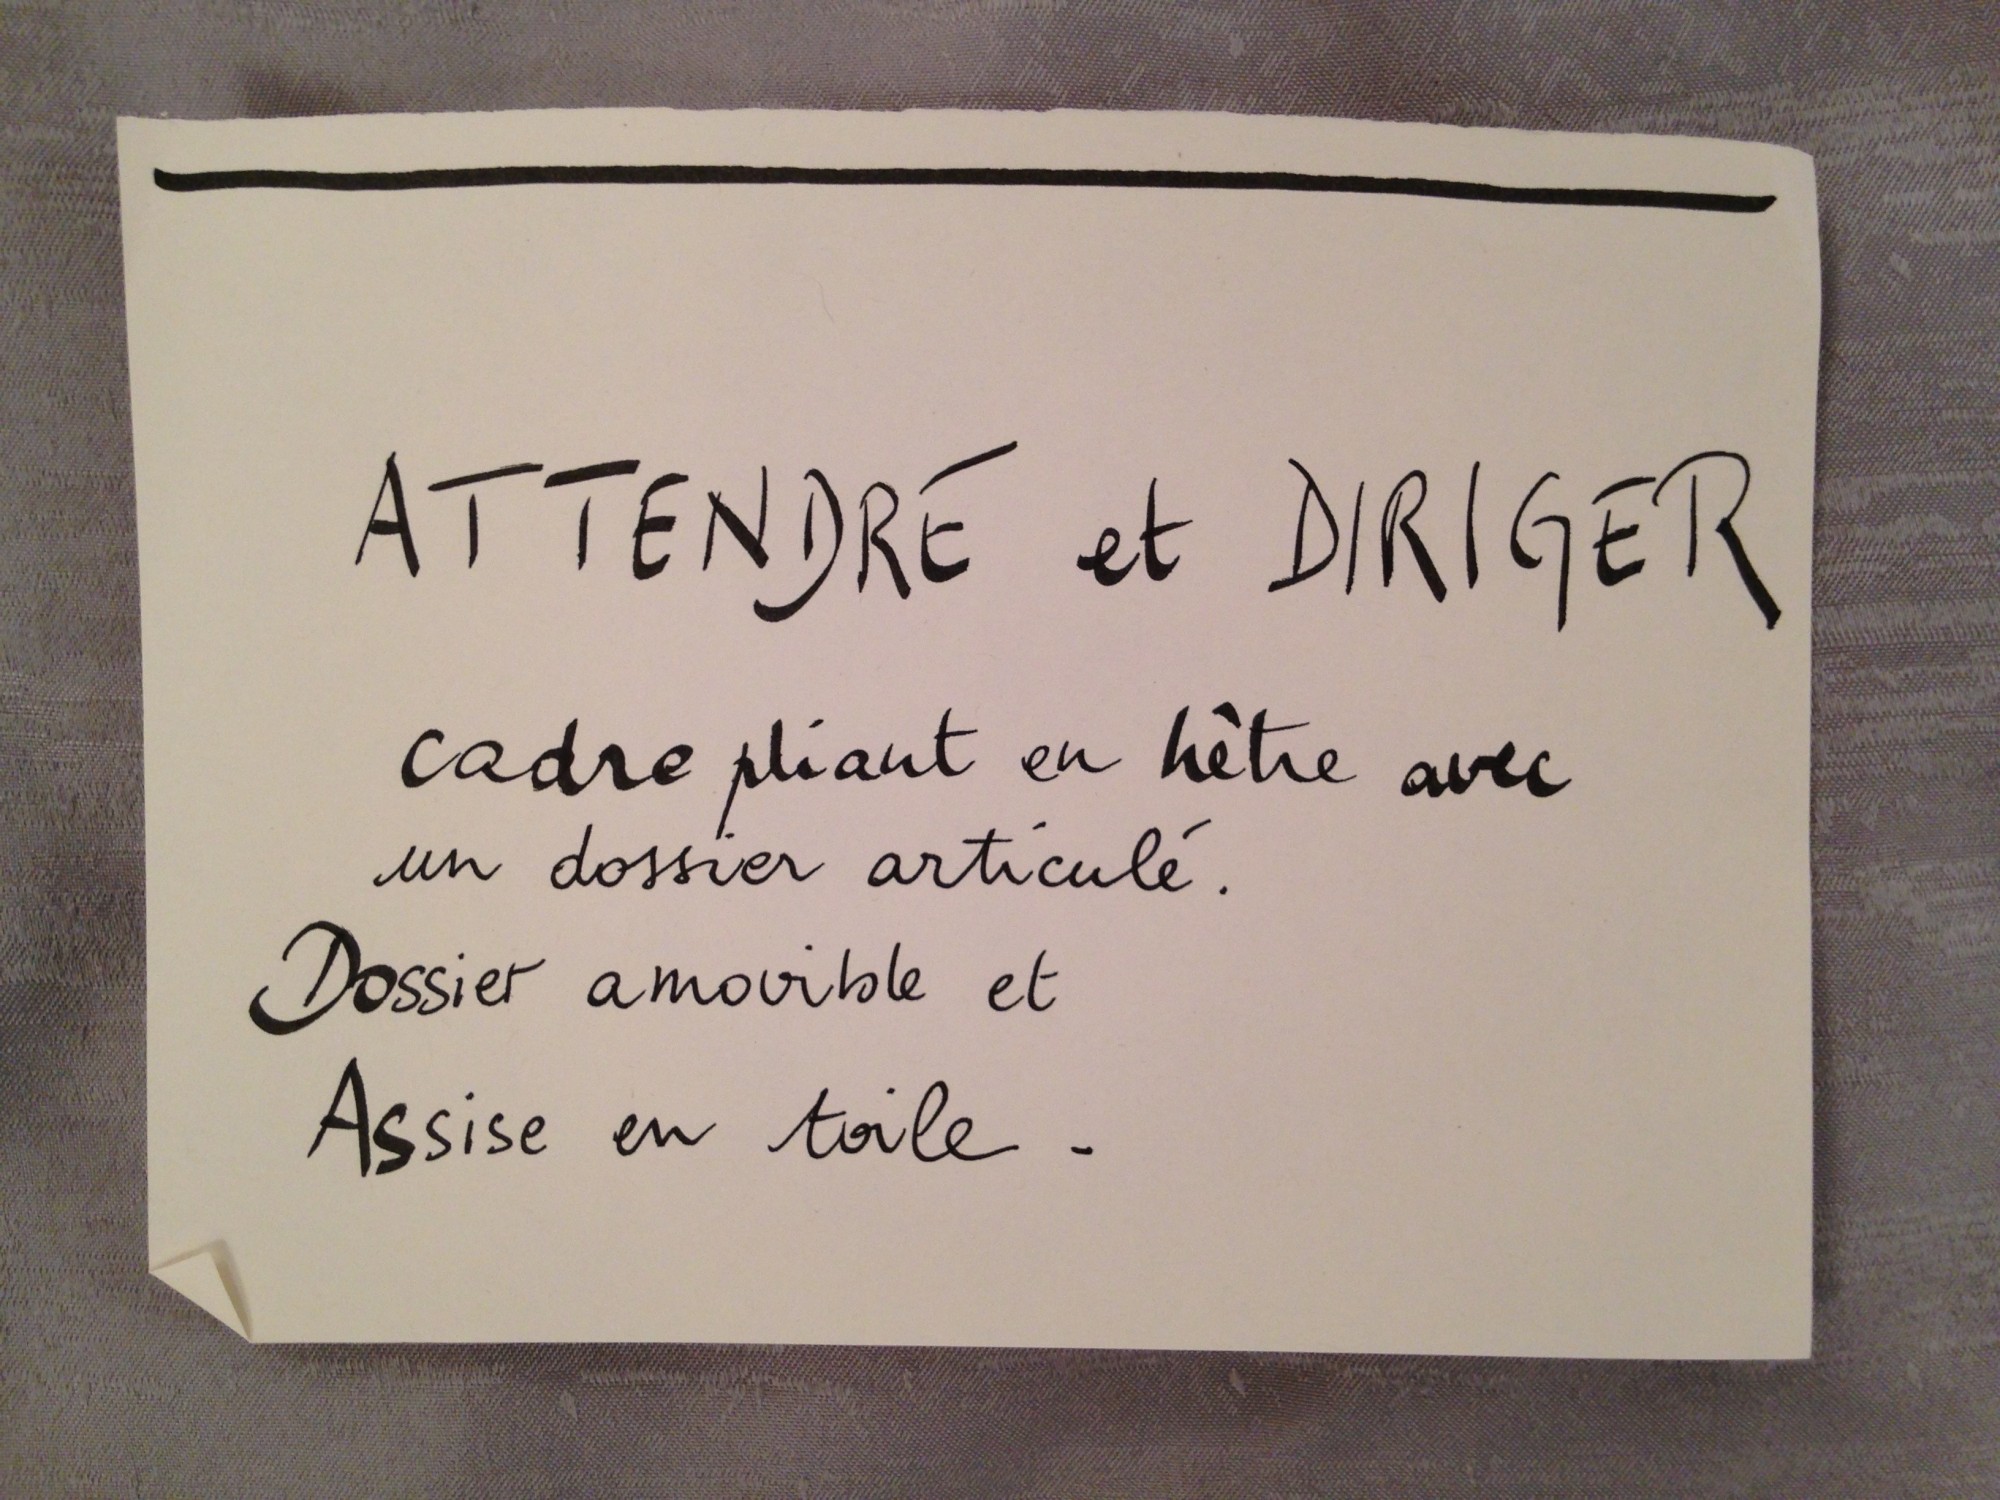 ATTENDRE et DIRIGER
cadre pliant en hêtre avec
un dossier articulé.
Dossier amovible et
Assise en toile -